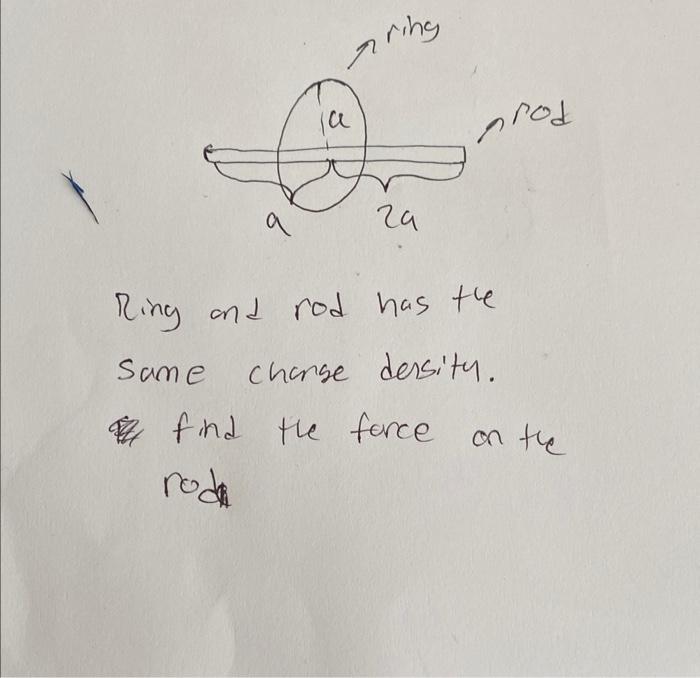 ring
a
rod
a
2a
Ring and rod has the
same charge density.
find the force on the
rod